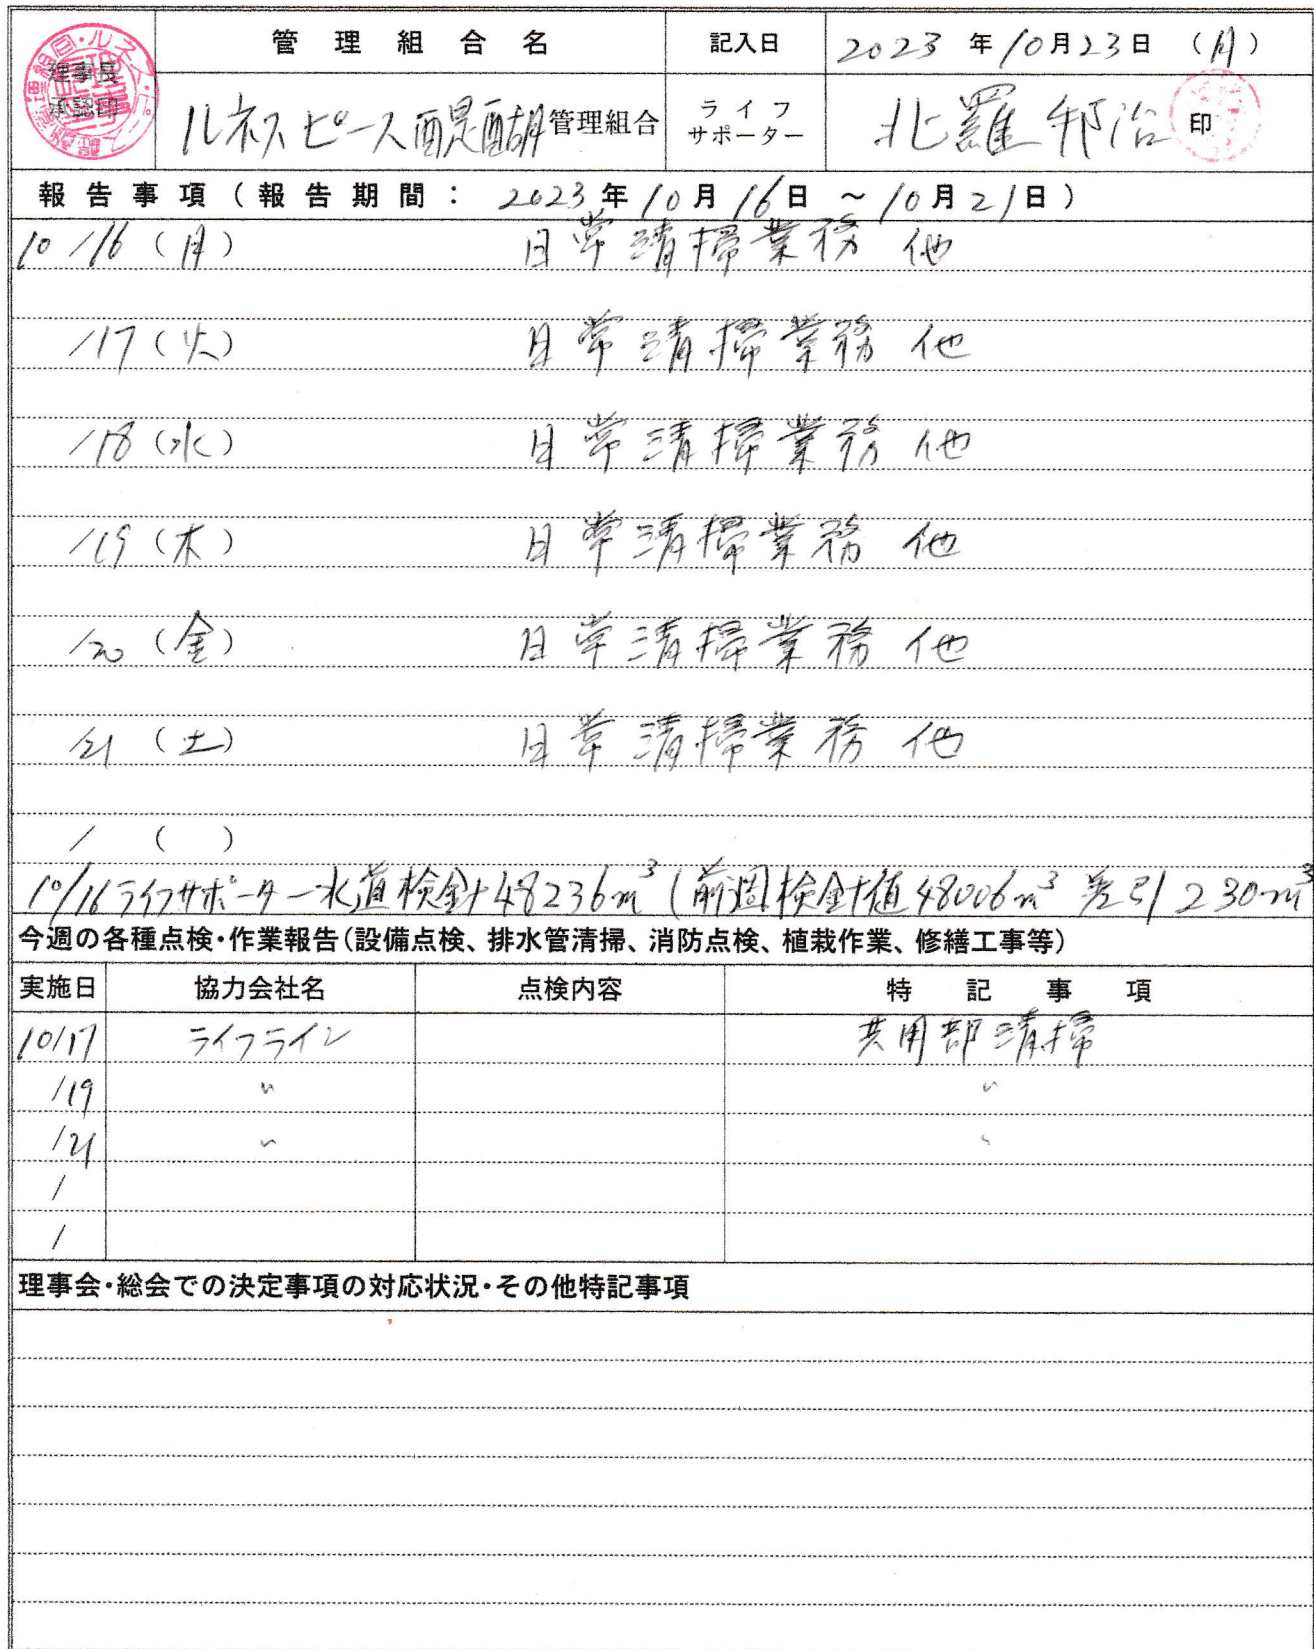 管理組合名 記入日 2023年10月23日(月)
理事長
承認印
ルネスピース醍醐管理組合 ライフサポーター 北羅邦治 印
報告事項(報告期間: 2023年10月16日 ~10月21日)
10/16(月) 日常清掃業務 他
/17(火) 日常清掃業務 他
/18(水) 日常清掃業務 他
/19(木) 日常清掃業務 他
/20(金) 日常清掃業務 他
/21(土) 日常清掃業務 他
/ ( )
10/16ライフサポーター水道検針48236m³(前週検針値48006m³ 差引230m³
今週の各種点検・作業報告(設備点検、排水管清掃、消防点検、植栽作業、修繕工事等)
実施日 協力会社名 点検内容 特記事項
10/17 ライフライン 共用部清掃
/19 〃 〃
/21 〃 〃
/
/
理事会・総会での決定事項の対応状況・その他特記事項